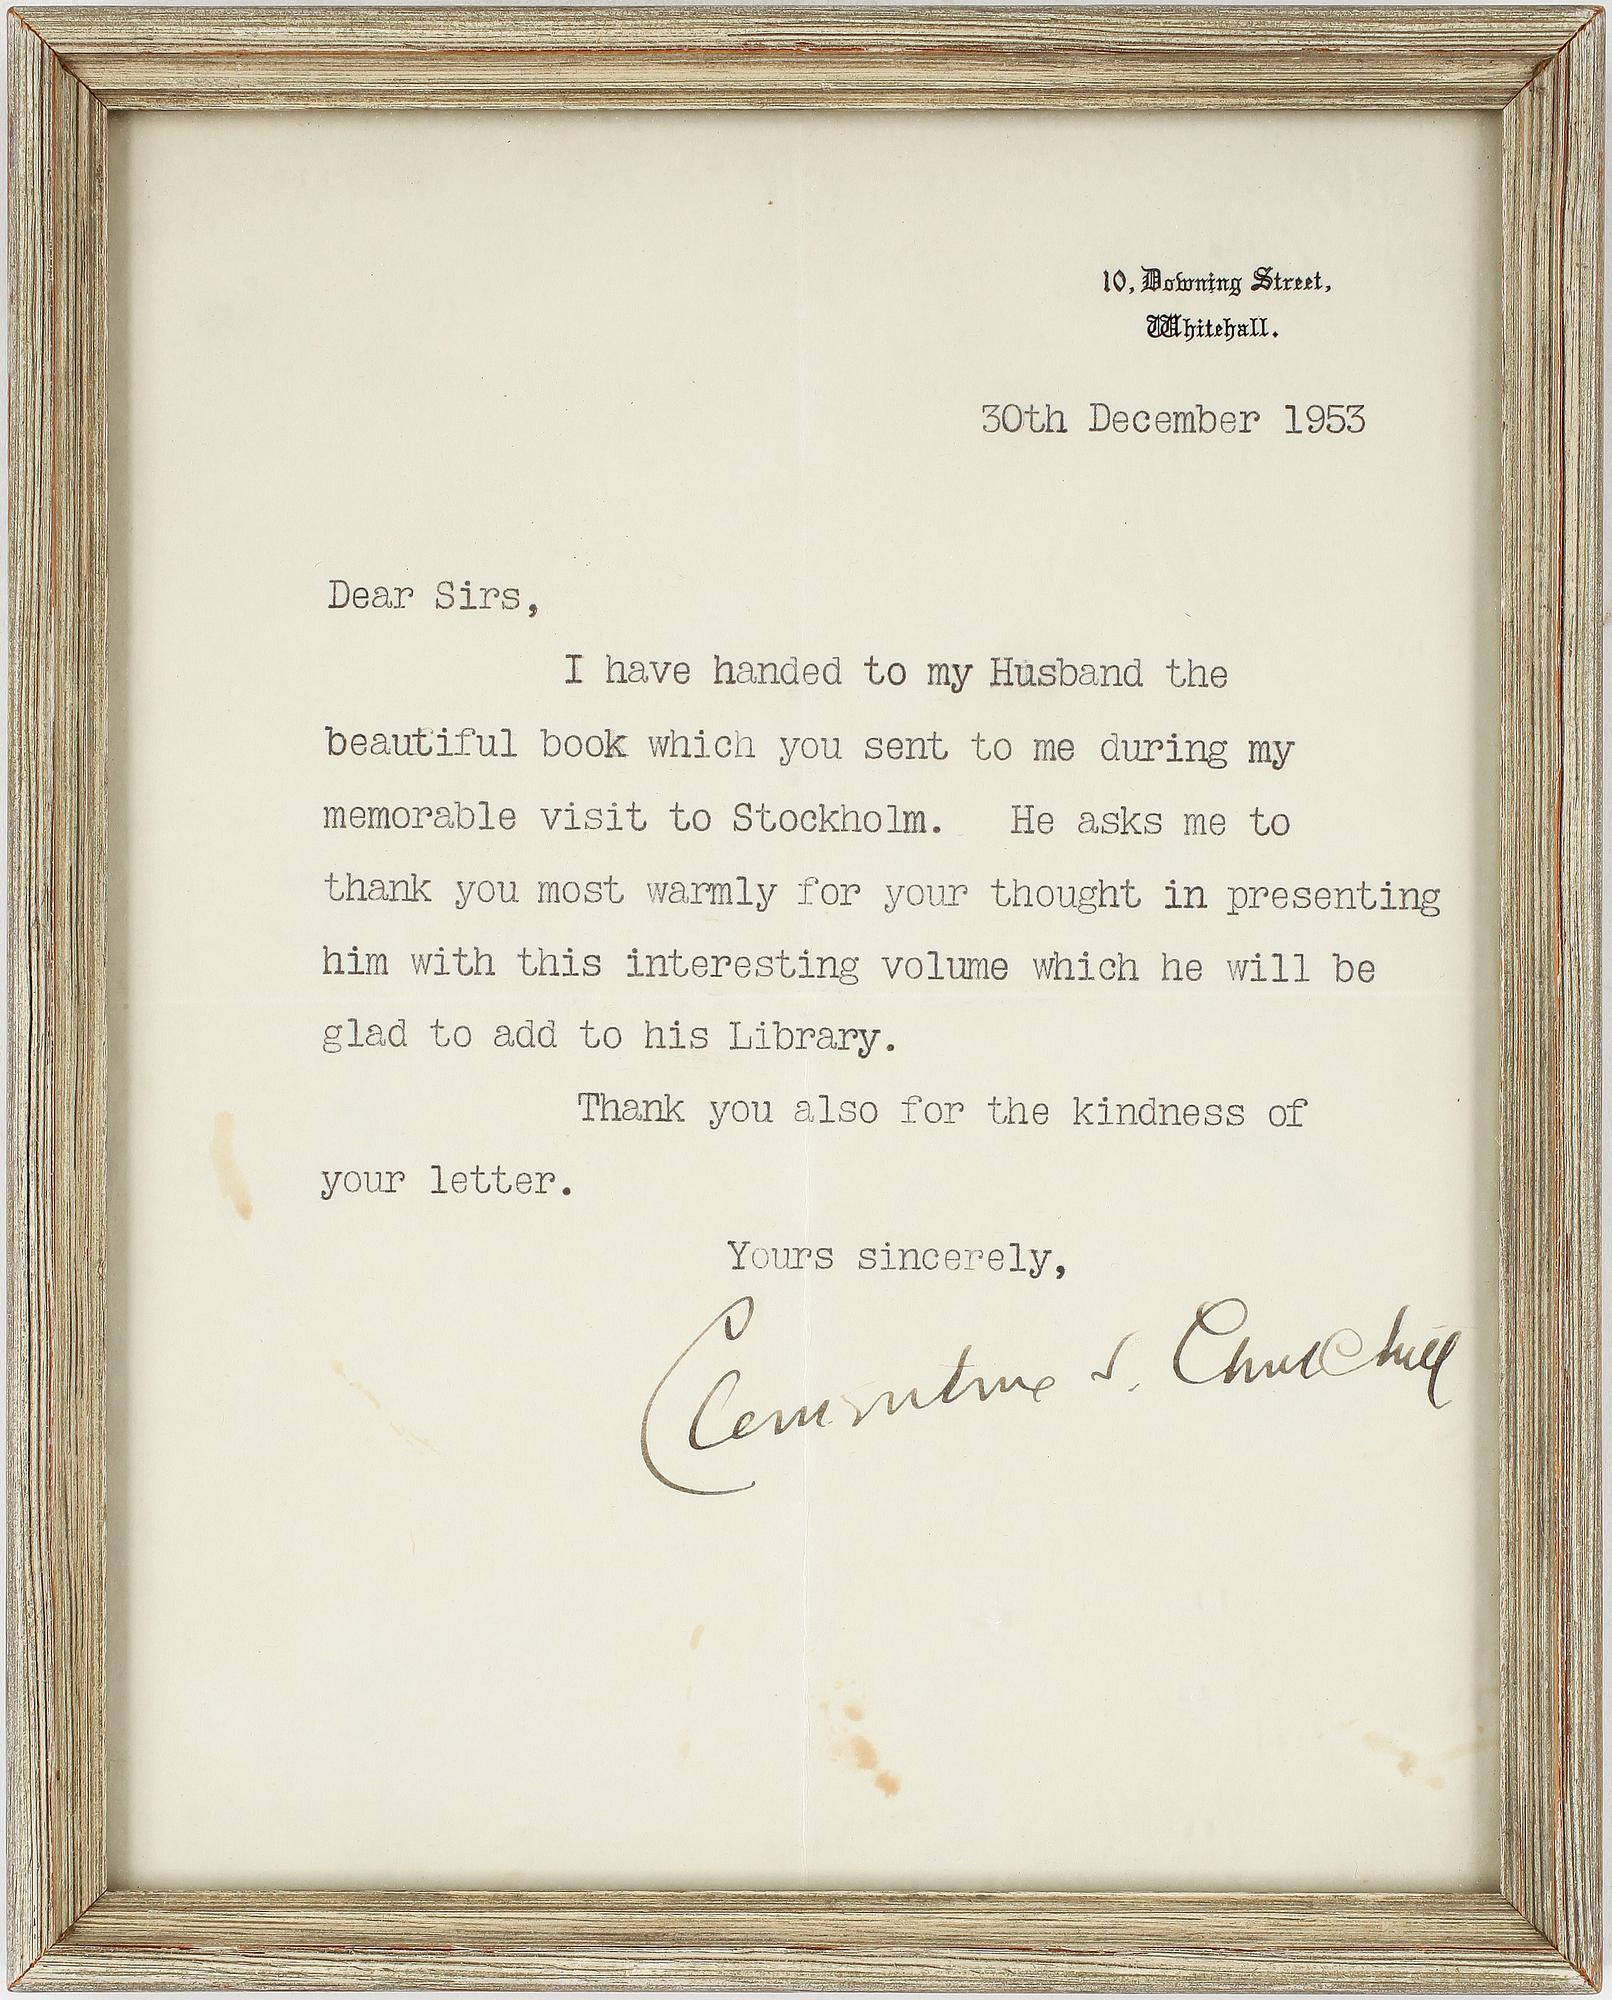 10, Downing Street,
Whitehall.
30th December 1953
Dear Sirs,
I have handed to my Husband the
beautiful book which you sent to me during my
memorable visit to Stockholm. He asks me to
thank you most warmly for your thought in presenting
him with this interesting volume which he will be
glad to add to his Library.
Thank you also for the kindness of
your letter.
Yours sincerely,
Clementine S. Churchill